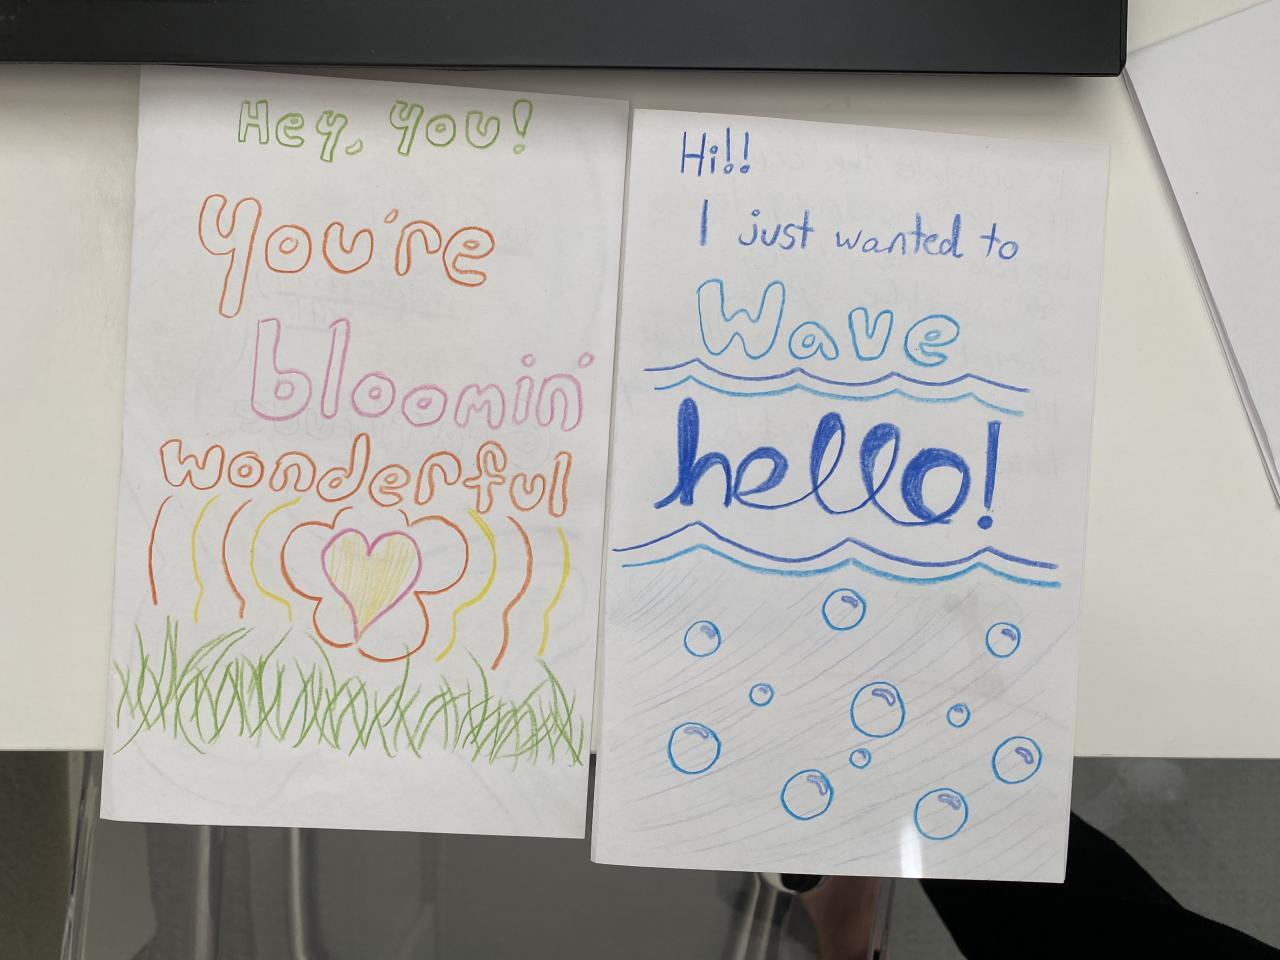 Hey, you!
you're
bloomin'
wonderful
Hi!!
I just wanted to
Wave
hello!